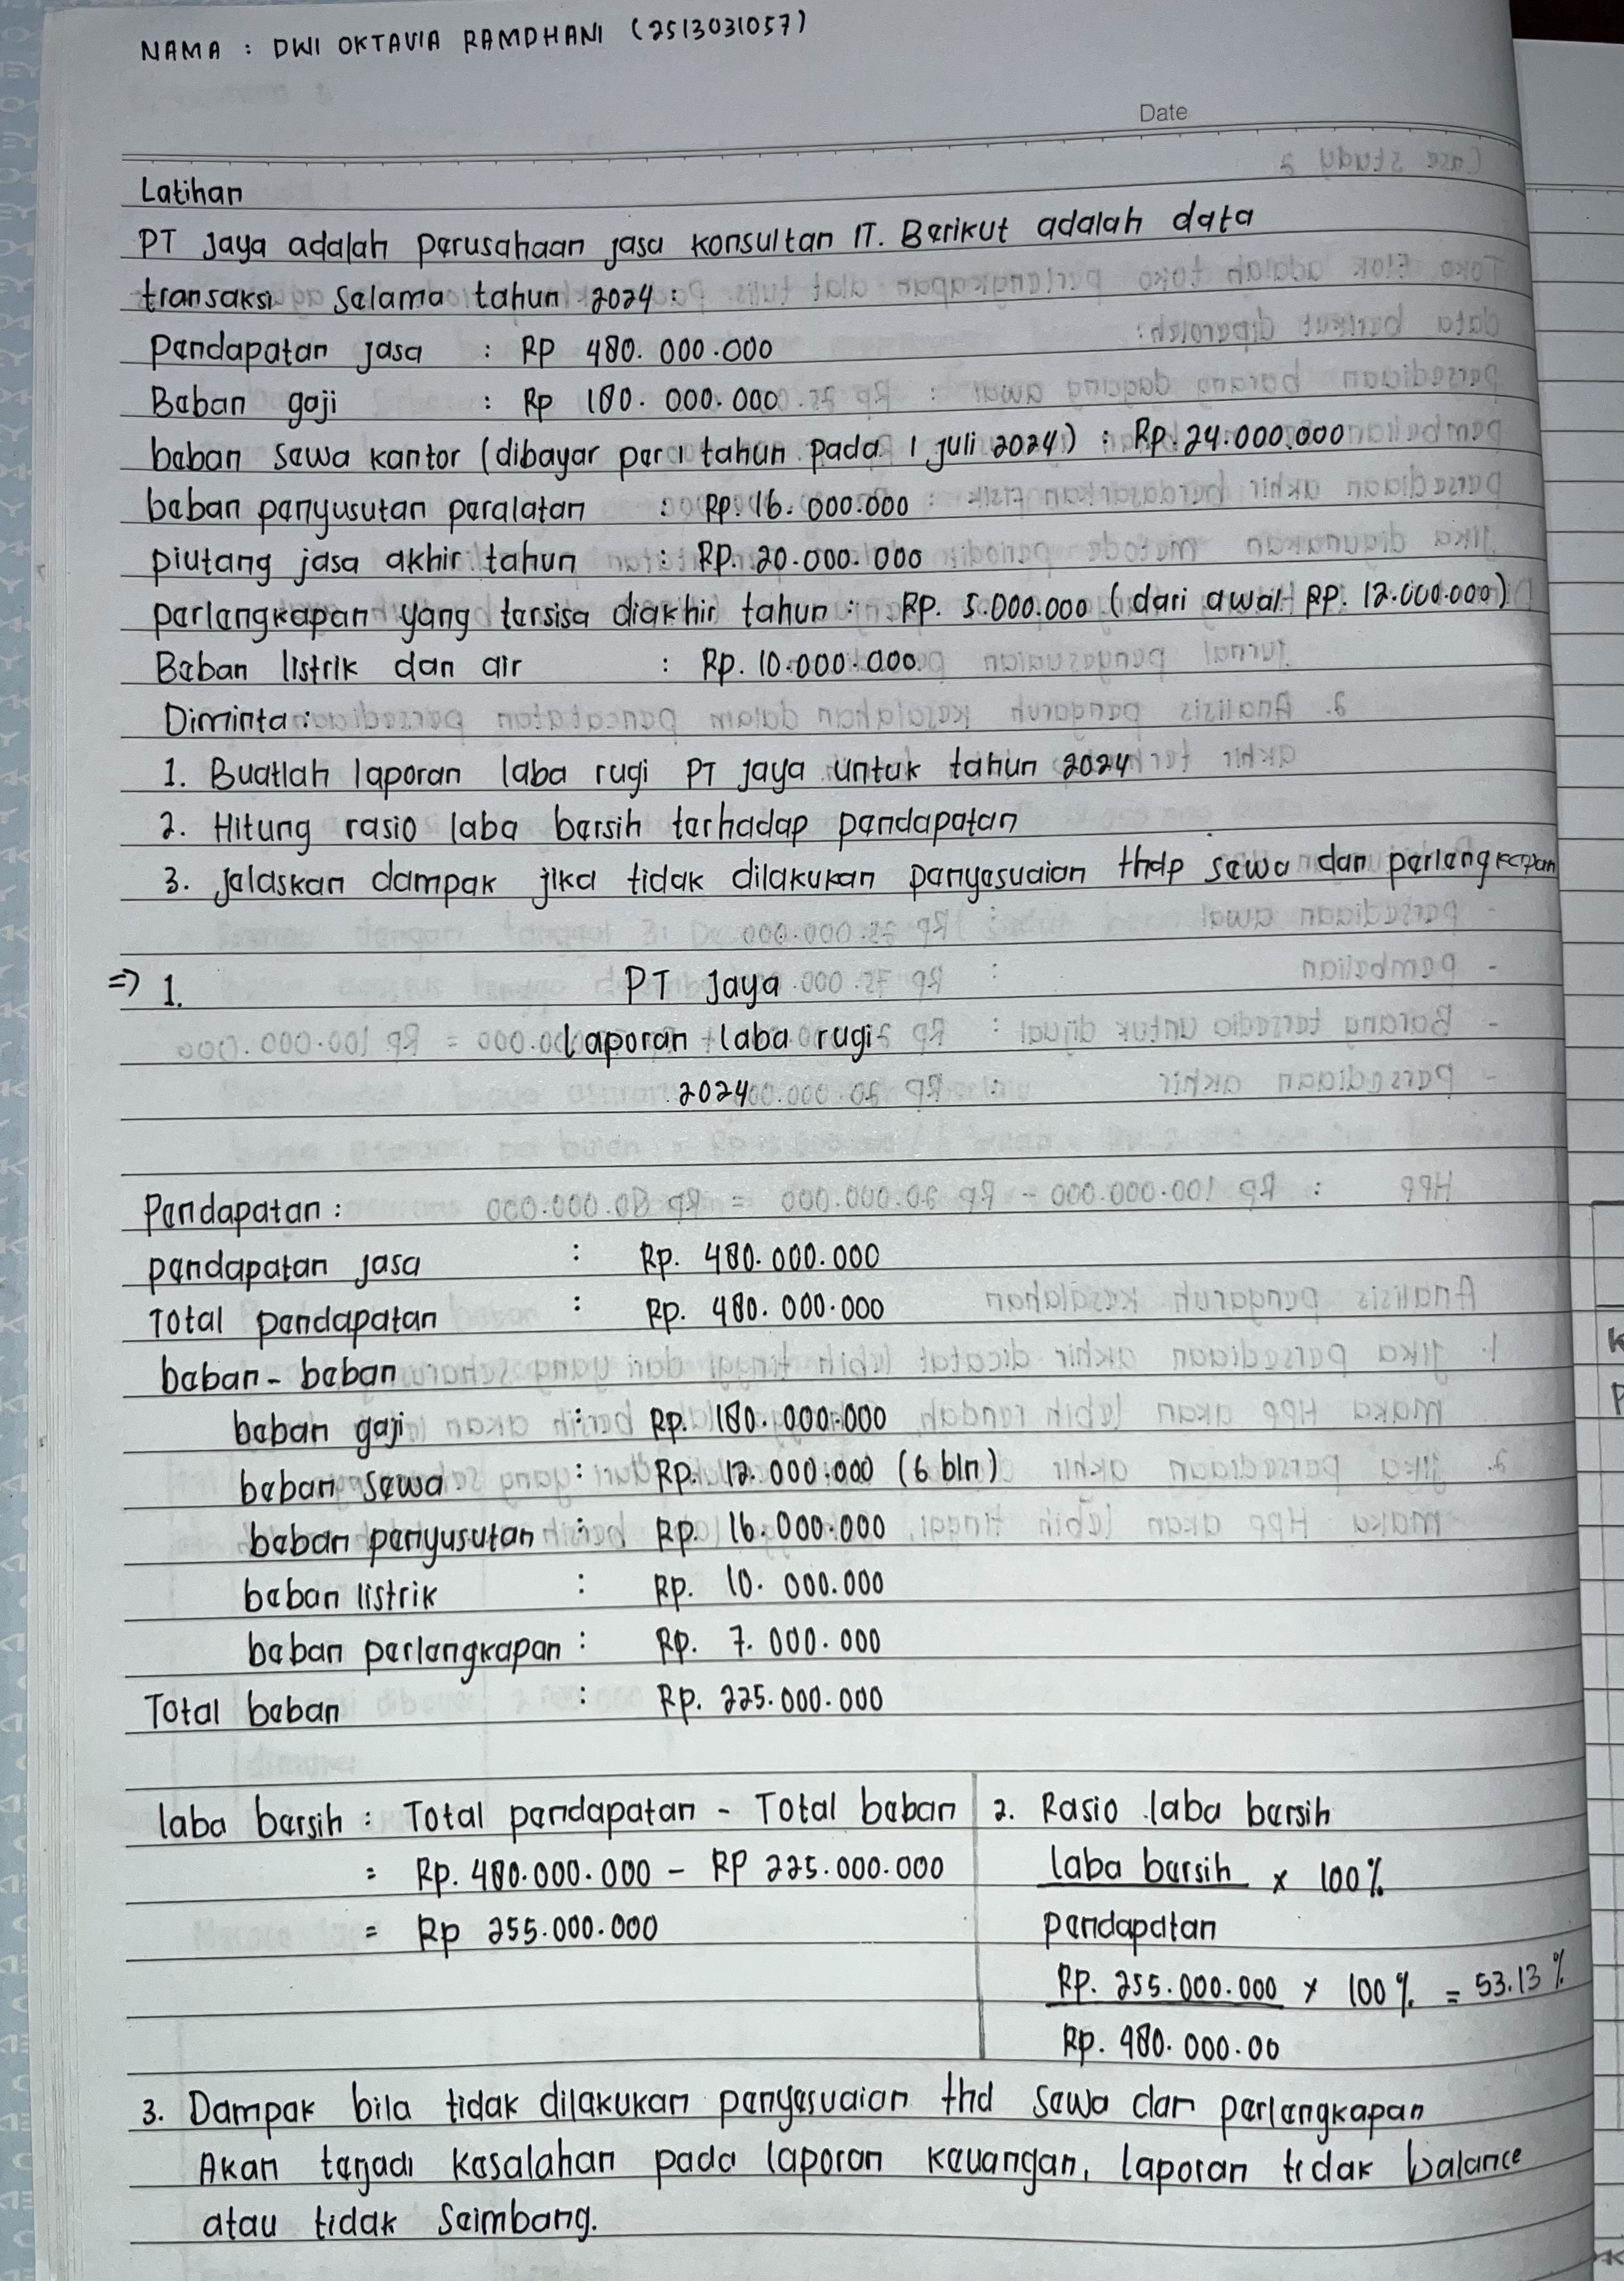 NAMA : DWI OKTAVIA RAMDHANI (2513031057)
Date
Latihan
PT Jaya adalah perusahaan jasa konsultan IT. Berikut adalah data
transaksi selama tahun 2024 :
pendapatan jasa : Rp 480.000.000
Beban gaji : Rp 180.000.000
beban sewa kantor (dibayar per 1 tahun pada 1 juli 2024) : Rp. 24.000.000
beban penyusutan peralatan : Rp. 16.000.000
piutang jasa akhir tahun : Rp. 20.000.000
perlengkapan yang tersisa diakhir tahun : Rp. 5.000.000 (dari awal Rp. 12.000.000)
Beban listrik dan air : Rp. 10.000.000
Diminta :
1. Buatlah laporan laba rugi PT Jaya untuk tahun 2024
2. Hitung rasio laba bersih terhadap pendapatan
3. Jelaskan dampak jika tidak dilakukan penyesuaian thdp sewa dan perlengkapan
=> 1. PT Jaya
Laporan laba rugi
2024
Pendapatan :
pendapatan jasa : Rp. 480.000.000
Total pendapatan : Rp. 480.000.000
beban - beban
beban gaji : Rp. 180.000.000
beban sewa : Rp. 12.000.000 (6 bln)
beban penyusutan : Rp. 16.000.000
beban listrik : Rp. 10.000.000
beban perlengkapan : Rp. 7.000.000
Total beban : Rp. 225.000.000
laba bersih : Total pendapatan - Total beban
= Rp. 480.000.000 - Rp 225.000.000
= Rp 255.000.000
2. Rasio laba bersih
laba bersih x 100%
pendapatan
Rp. 255.000.000 x 100% = 53.13%
Rp. 480.000.00
3. Dampak bila tidak dilakukan penyesuaian thd sewa dan perlengkapan
Akan terjadi kesalahan pada laporan keuangan, laporan tidak balance
atau tidak seimbang.